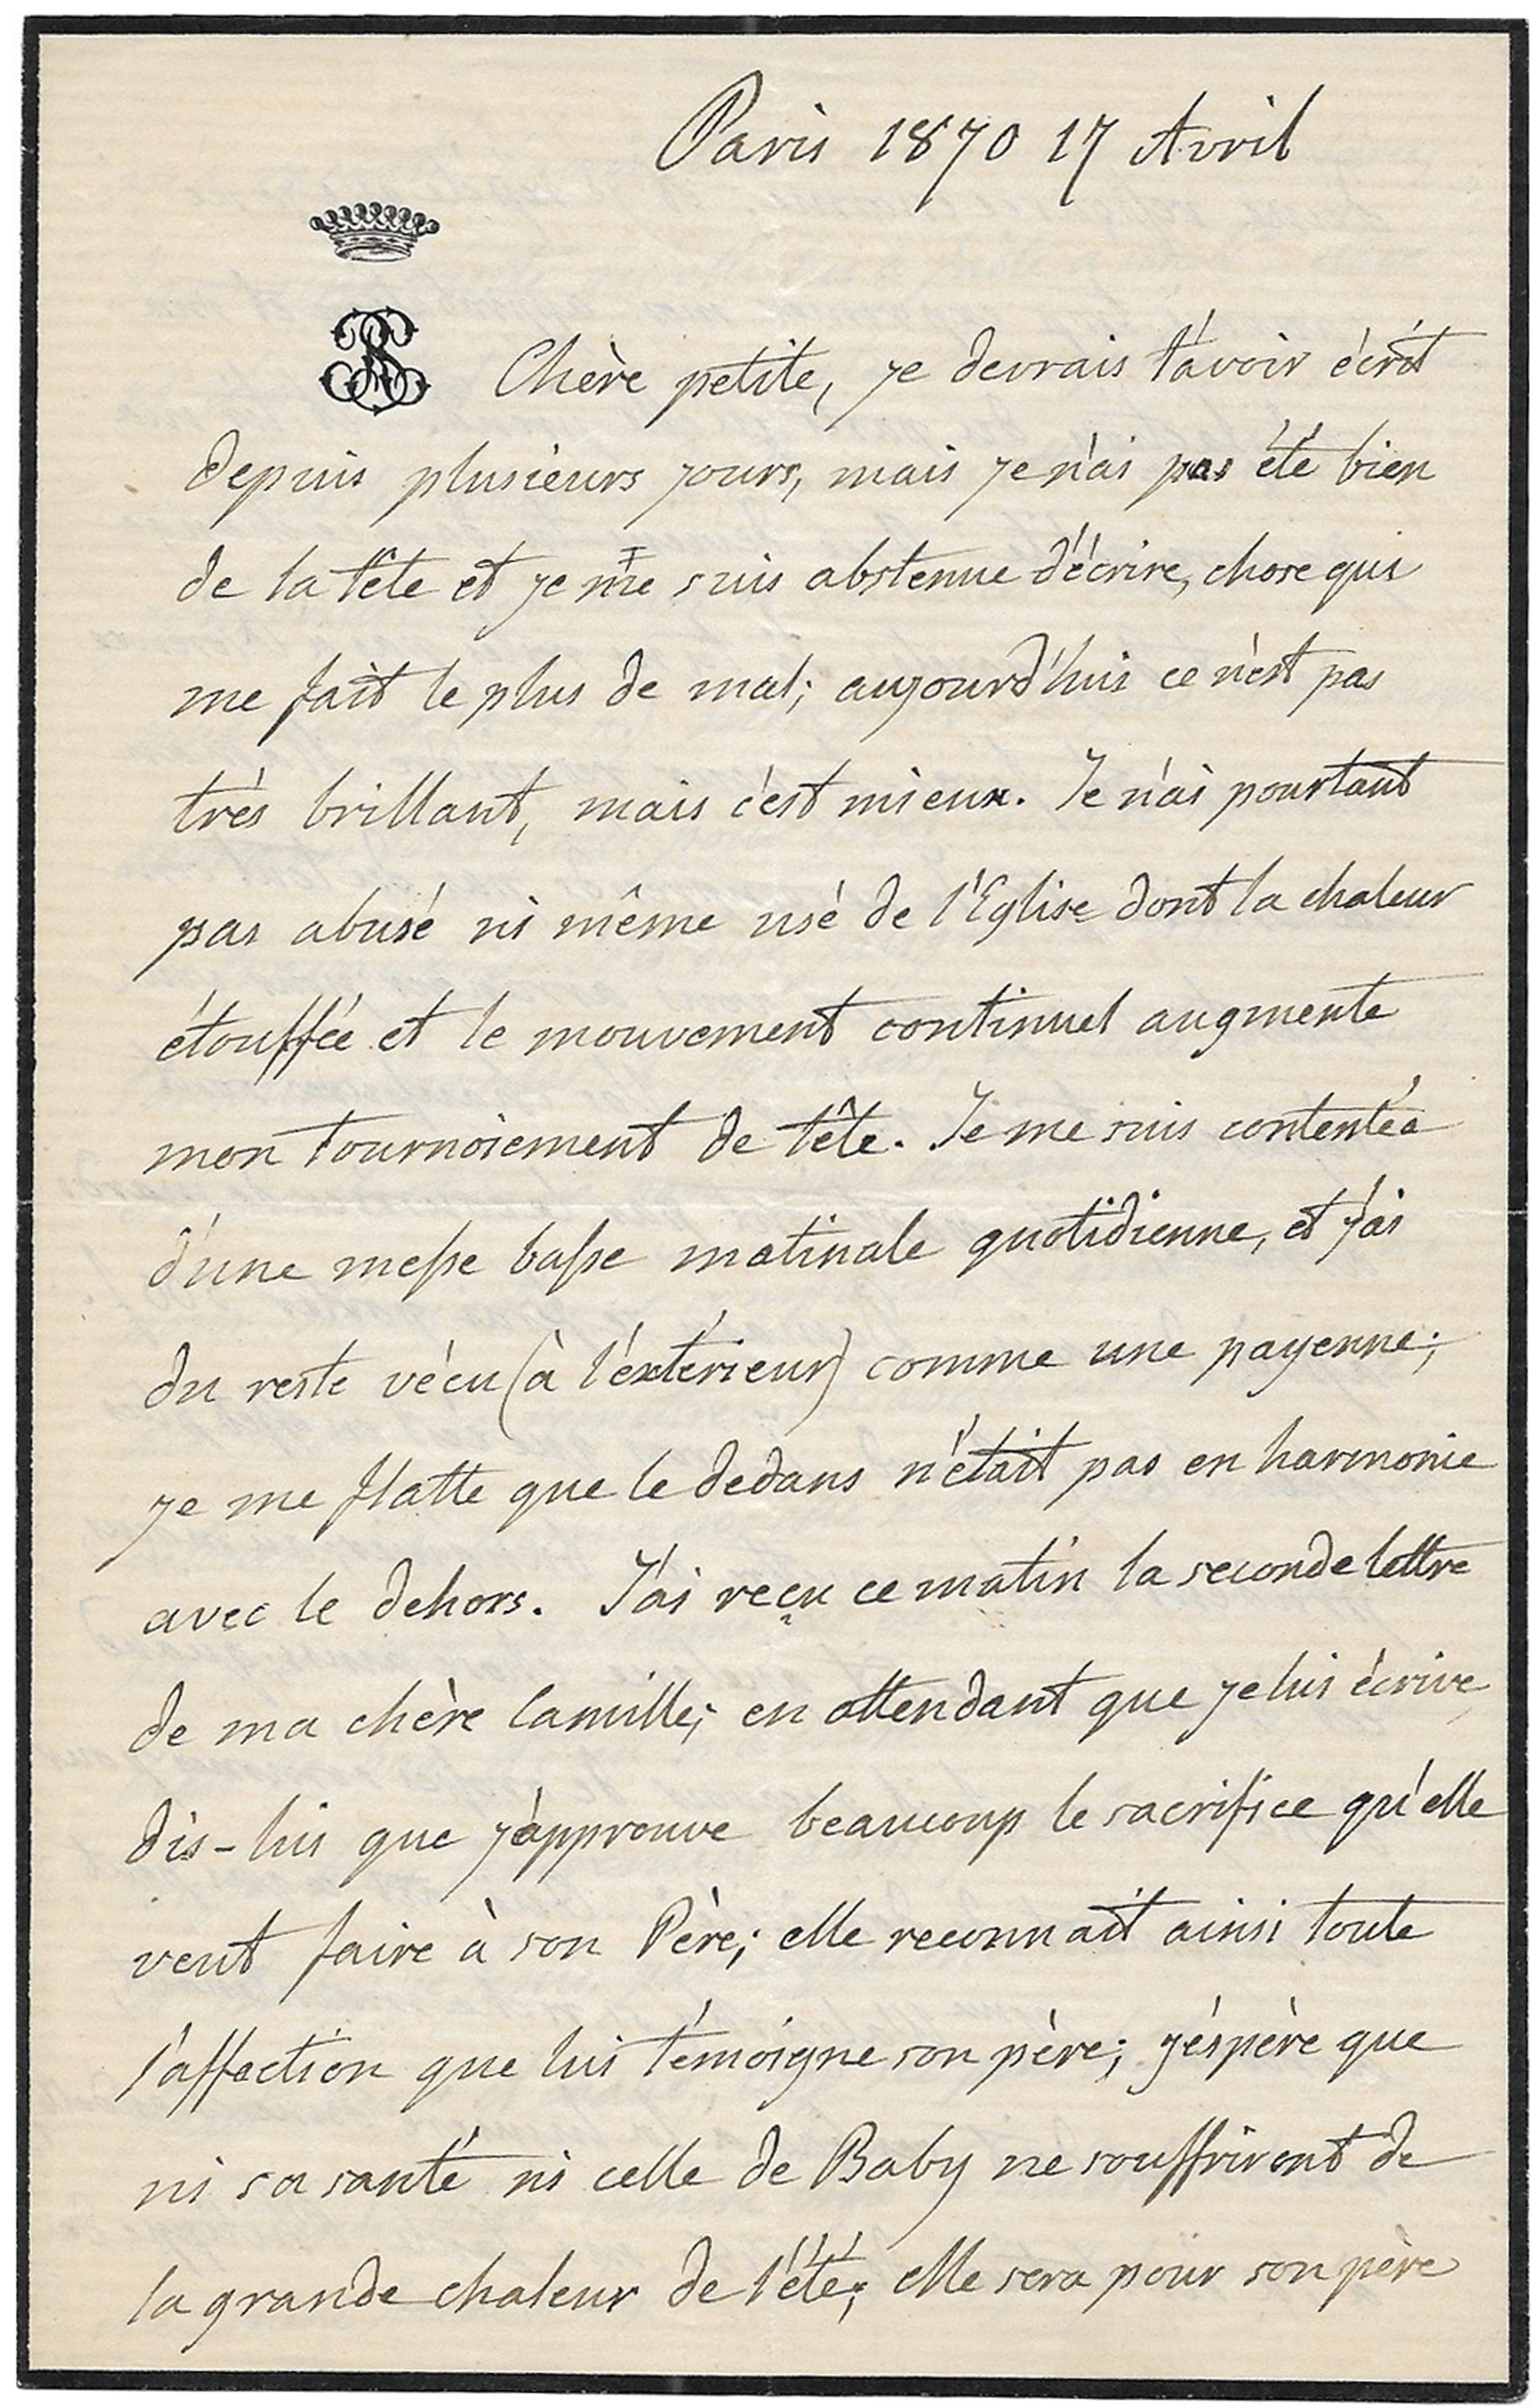 Paris 1870 17 Avril
Chère petite, je devrais t'avoir écrit
depuis plusieurs jours, mais je n'ai pas été bien
de la tête et je me suis abstenue d'écrire, chose qui
me fait le plus de mal; aujourd'hui ce n'est pas
très brillant, mais c'est mieux. Je n'ai pourtant
pas abusé ni même usé de l'Eglise dont la chaleur
étouffée et le mouvement continuel augmente
mon tournoiement de tête. Je me suis contentée
d'une messe basse matinale quotidienne, et j'ai
du reste vécu (à l'extérieur) comme une payenne;
je me flatte que le dedans n'était pas en harmonie
avec le dehors. J'ai reçu ce matin la seconde lettre
de ma chère Camille; en attendant que je lui écrive,
dis-lui que j'approuve beaucoup le sacrifice qu'elle
veut faire à son Père; elle reconnait ainsi toute
l'affection que lui témoigne son père; j'éspère que
ni sa santé ni celle de Baby ne souffriront de
la grande chaleur de l'été; elle sera pour son père